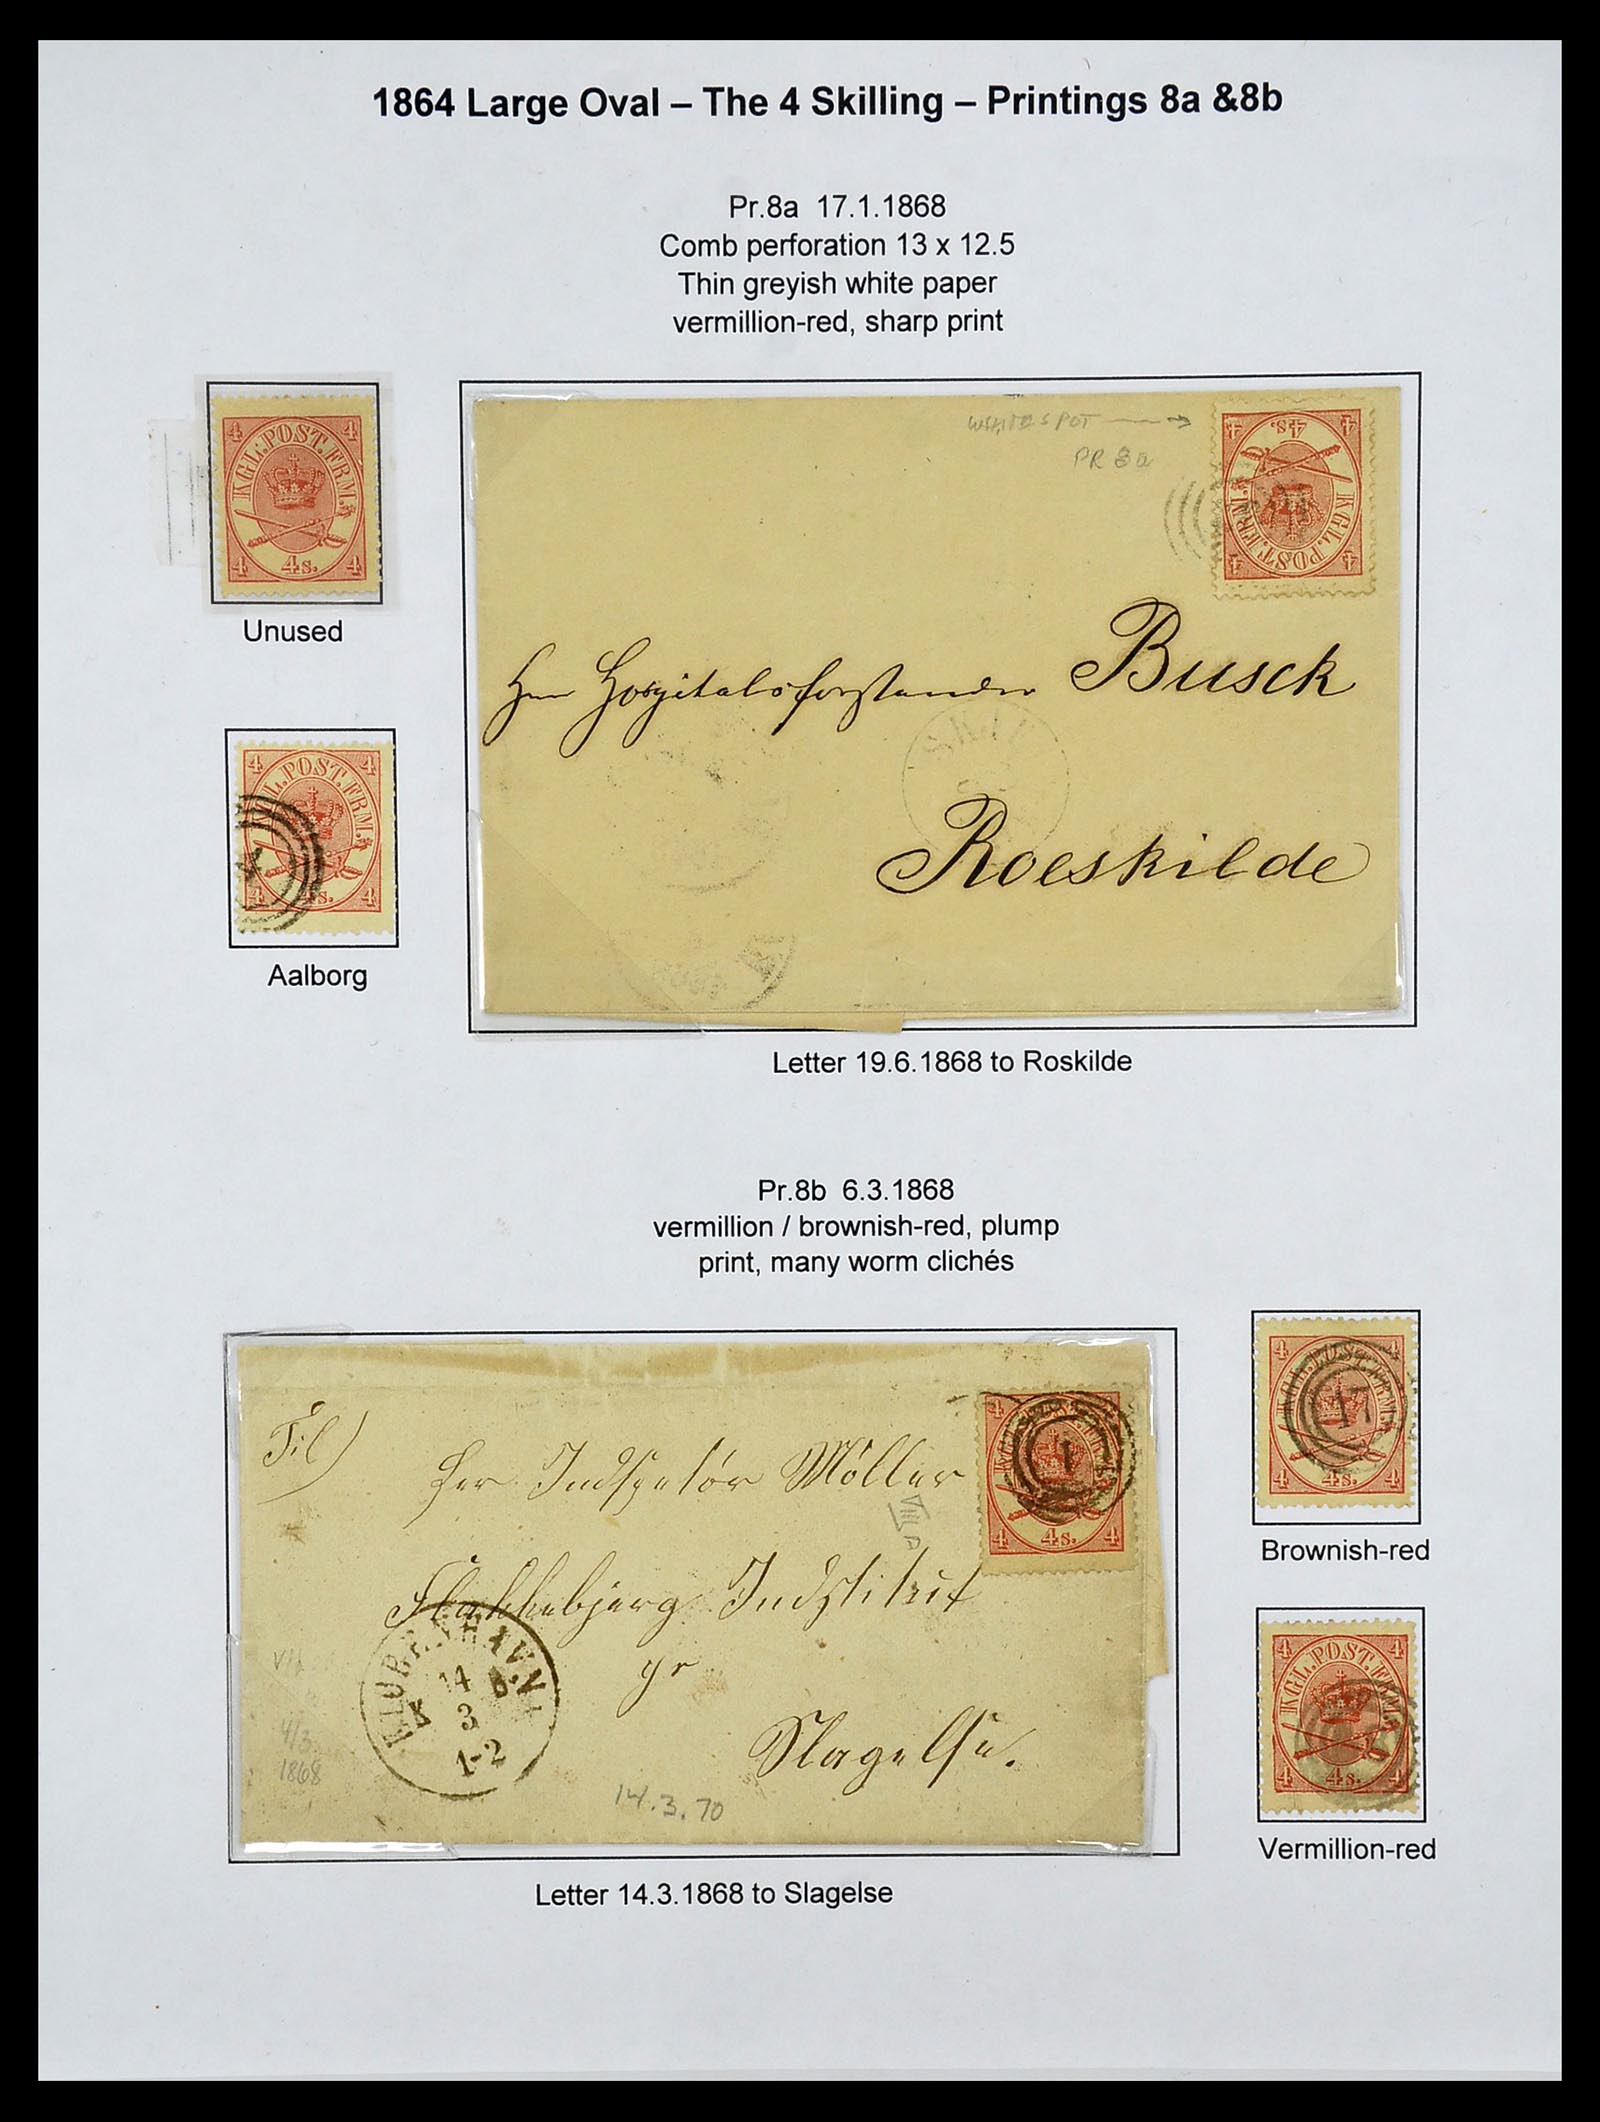 1864 Large Oval – The 4 Skilling – Printings 8a &8b
Pr.8a 17.1.1868
Comb perforation 13 x 12.5
Thin greyish white paper
vermillion-red, sharp print
4 4
KGL. POST. FRM.
4 4s. 4
Unused
4 4
L. POST. FRM.
4
s. 4
Aalborg
WHITE SPOT
PR 8a
4 4s. 4
KGL. POST. FRM.
4 4
Herr Hospitalsforstander Busck
Roeskilde
Letter 19.6.1868 to Roskilde
Pr.8b 6.3.1868
vermillion / brownish-red, plump
print, many worm clichés
Til)
Herr Indspektør Möller
Institut
pr
Slagelse.
4
1
4 4s. 4
KIØBENHAVN
14
3
1-2
4/3
1868
14.3.70
Letter 14.3.1868 to Slagelse
4 4
17
4 4s. 4
Brownish-red
4 4
KGL. POST. FRM.
4 4s. 4
Vermillion-red